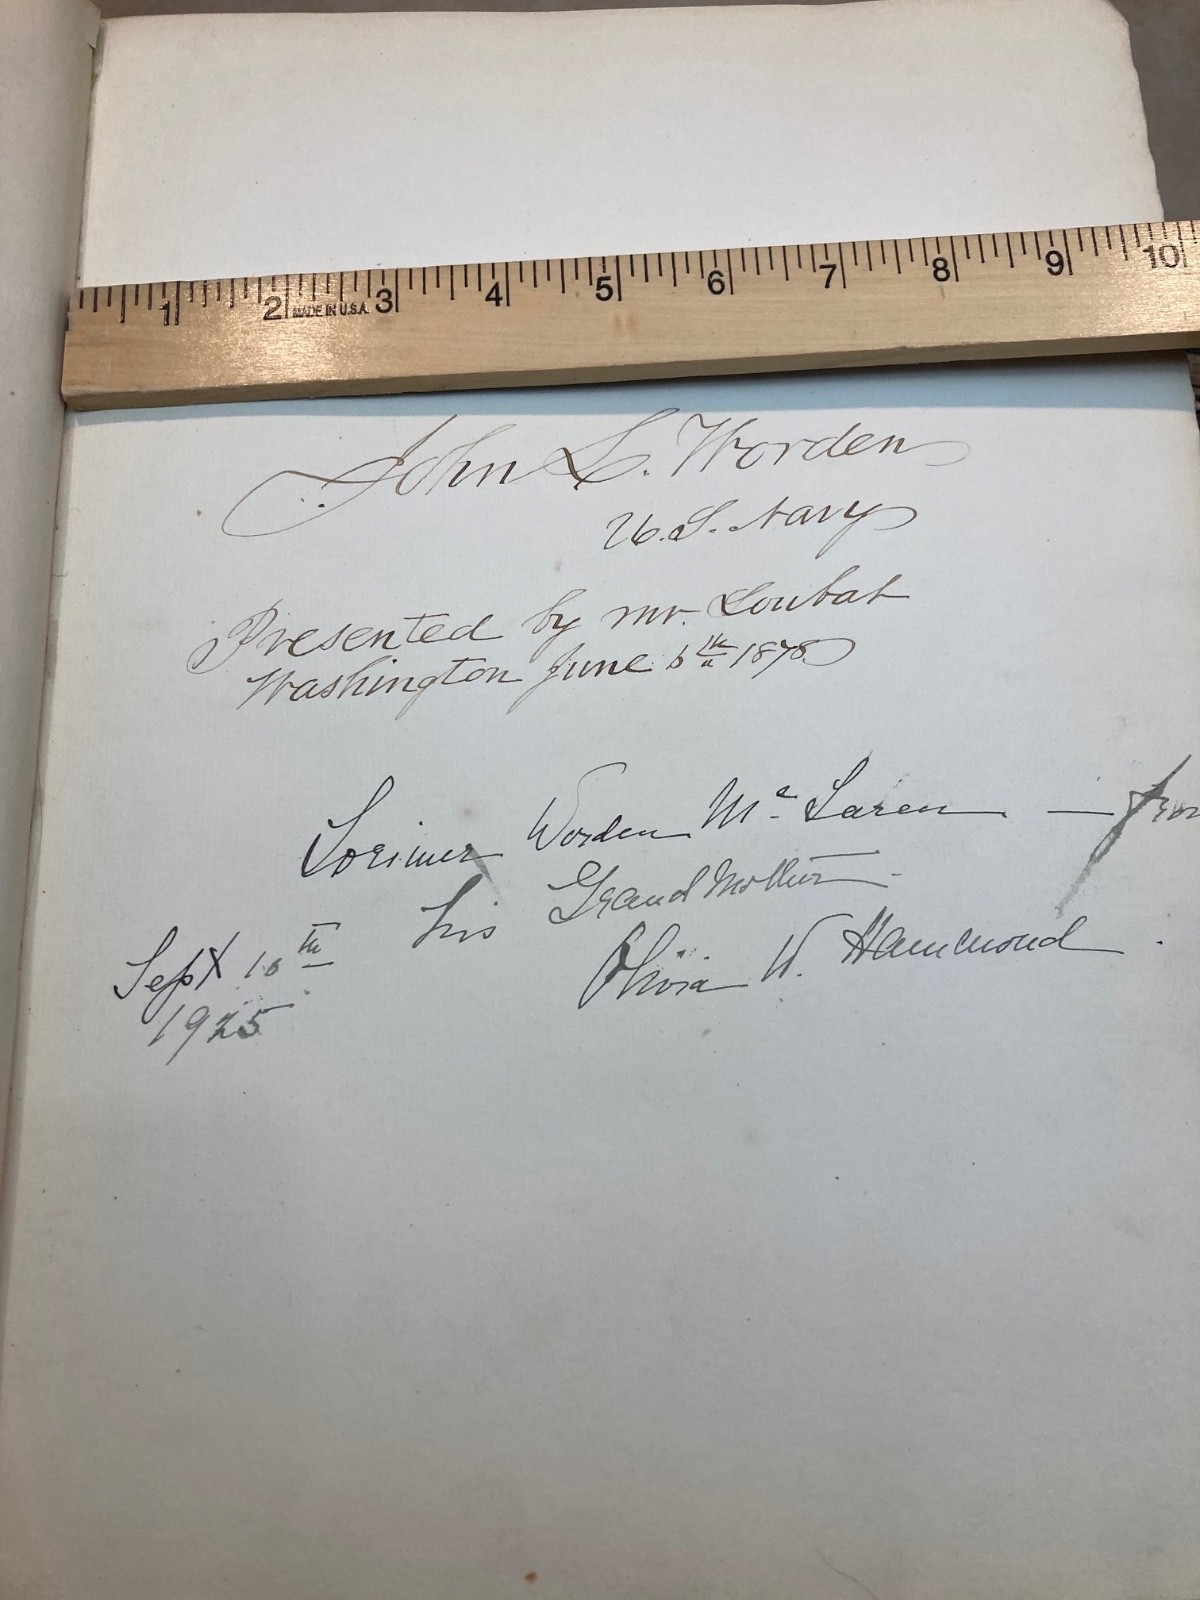 1 2 MADE IN U.S.A. 3 4 5 6 7 8 9 10
John L. Worden
U.S. Navy
Presented by Mr. Loubat
Washington June 6th 1878
Lorimer Worden Mc Laren — from
his Grand Mother
Sept 10th
Olivia W. Hammond.
1925